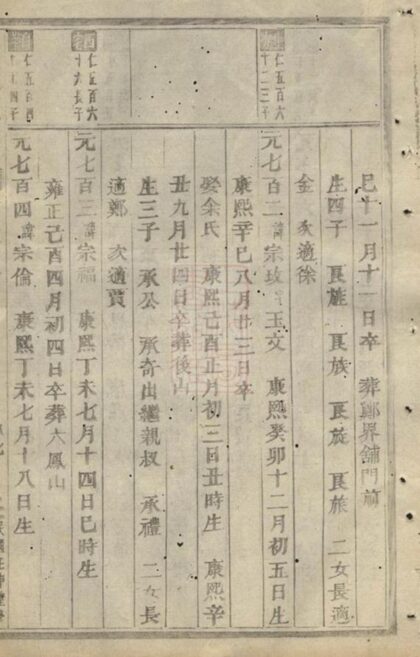 巳十一月十一日卒 葬鄭界舖門前
生四子 艮旌 艮族 艮旋 艮旅 二女長適
金 次適徐
仁五百六
十二三子
元七百二諱宗玫字玉文 康熙癸卯十二月初五日生
康熙辛巳八月廿三日卒
娶余氏 康熙己酉正月初三日丑時生 康熙辛
丑九月廿四日卒葬後山
生三子 承公 承奇出繼親叔 承禮 二女長
適鄭 次適賈
仁五百六
十九長子
元七百三諱宗福 康熙丁未七月十四日巳時生
雍正己酉四月初四日卒葬六鳳山
仁五百
四子
元七百四諱宗倫 康熙丁未七月十八日生